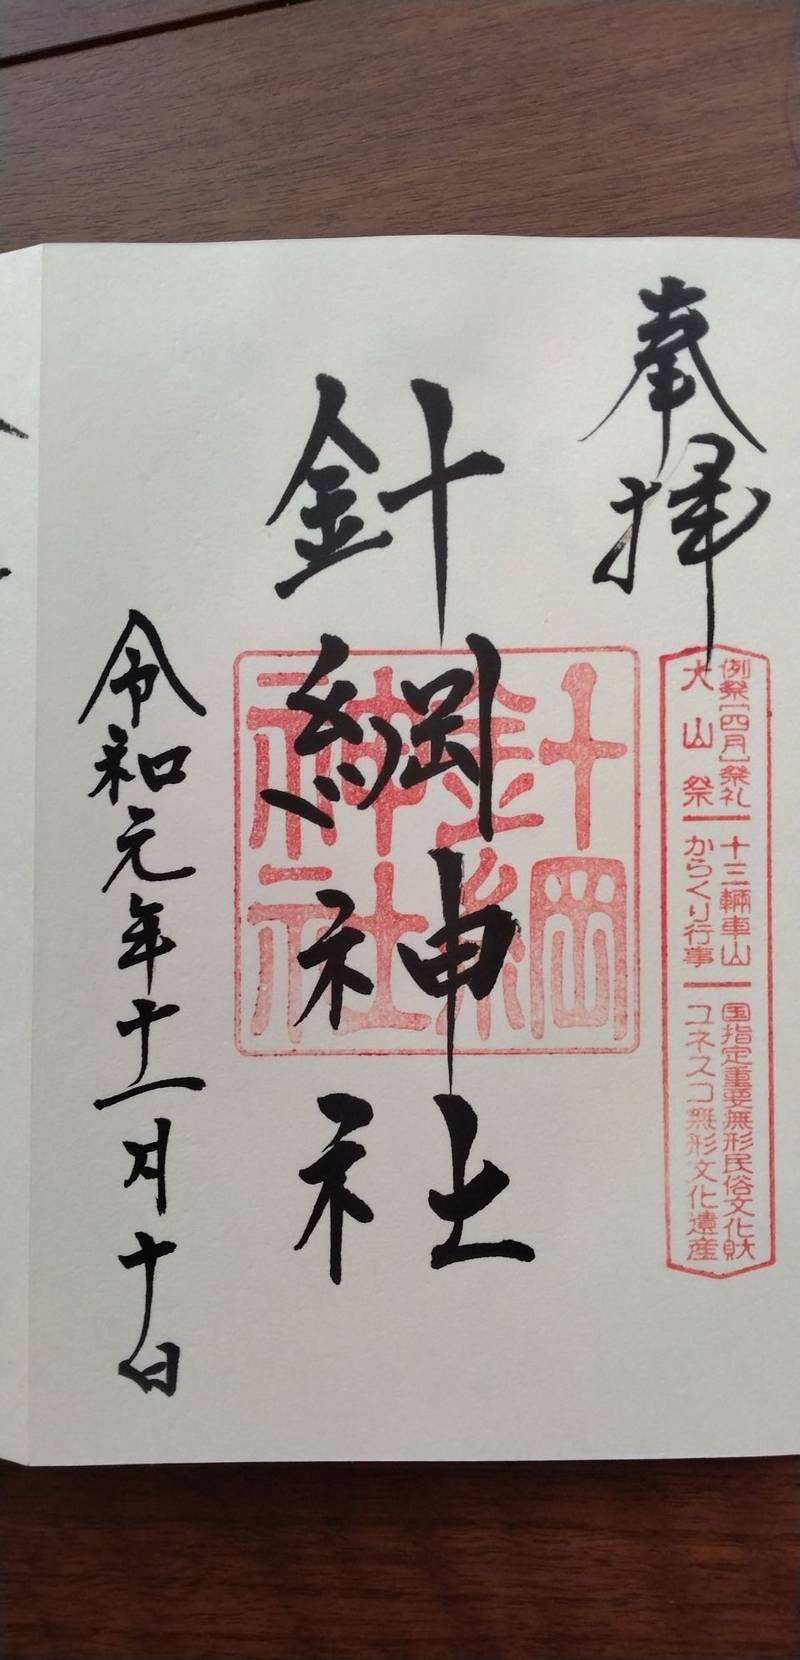 奉拝
例祭[四月]祭礼 十三輌車山 国指定重要無形民俗文化財
犬山祭 からくり行事 ユネスコ無形文化遺産
針綱神社
針綱神社
令和元年十一月十日